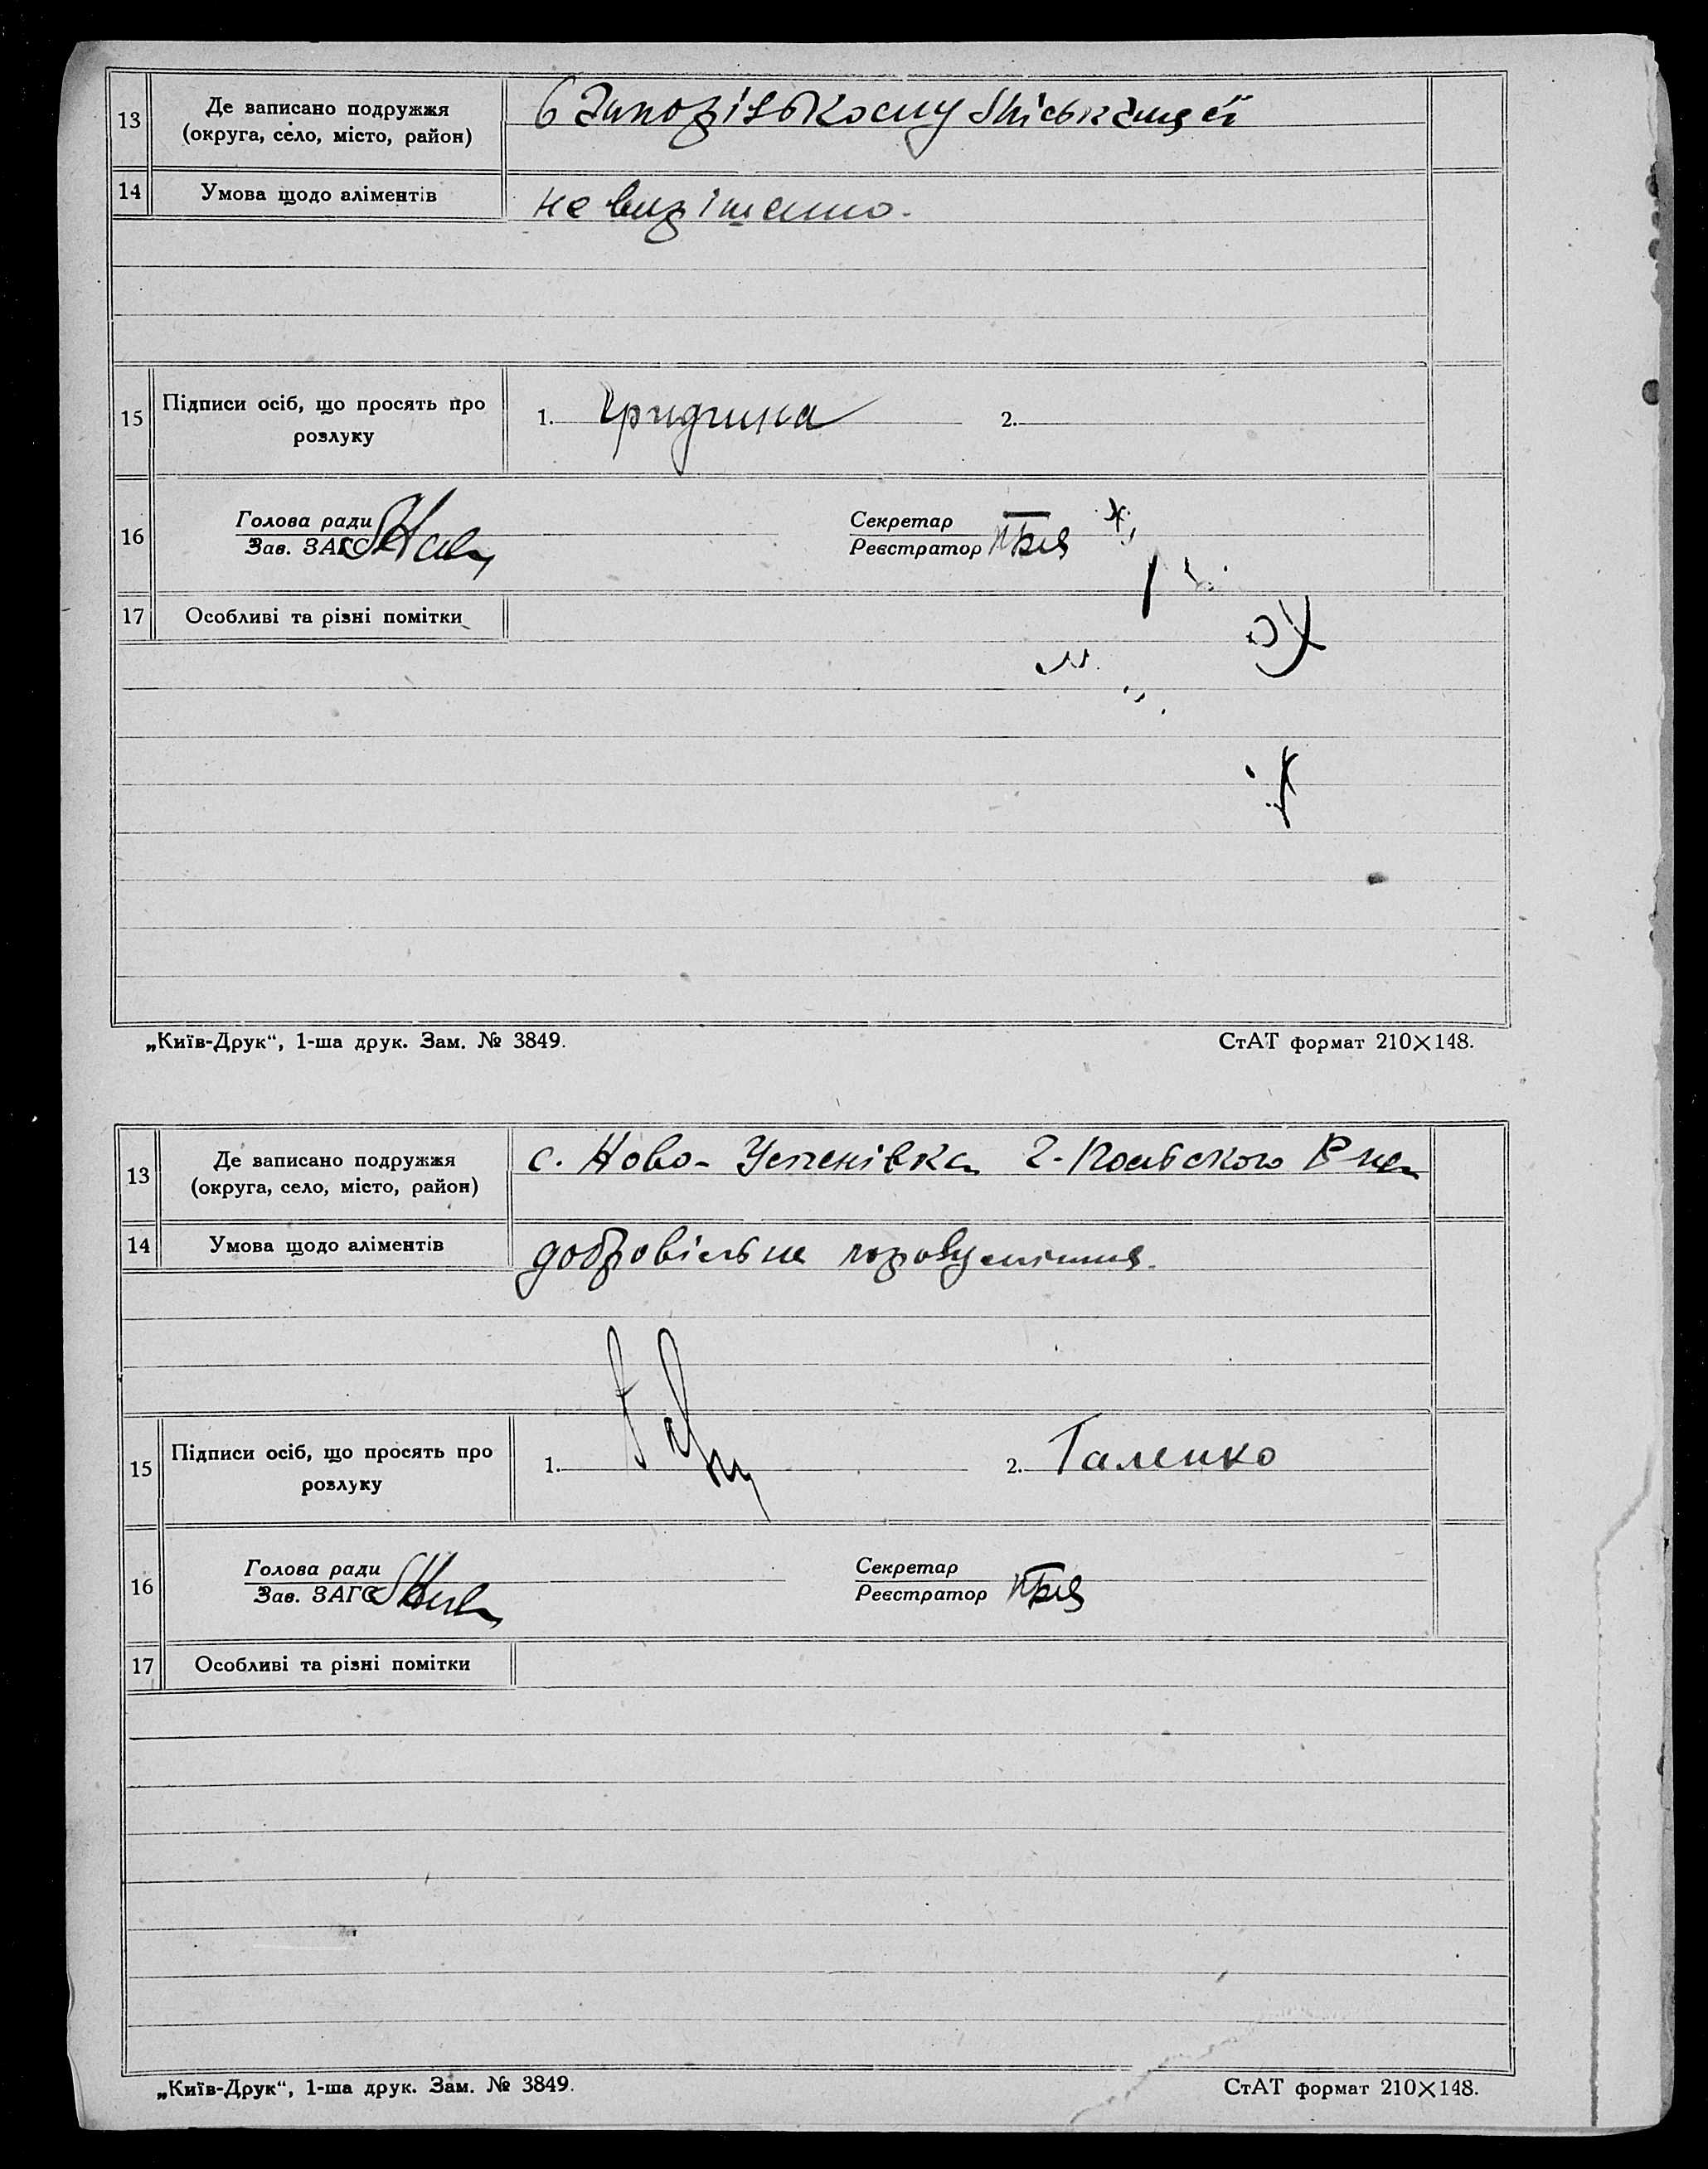 13 Де записано подружжя
(округа, село, місто, район)
в Запорізькому
14 Умова щодо аліментів
не вирішено.
15 Підписи осіб, що просять про
розлуку
1. Гридчина 2.
16 Голова ради
Зав. ЗАГС
Секретар
Реєстратор
17 Особливі та різні помітки
„Київ-Друк“, 1-ша друк. Зам. № 3849. СтАТ формат 210×148.
13 Де записано подружжя
(округа, село, місто, район)
с. Ново-Успенівка
14 Умова щодо аліментів
добровільне порозуміння.
15 Підписи осіб, що просять про
розлуку
1. 2. Галенко
16 Голова ради
Зав. ЗАГС
Секретар
Реєстратор
17 Особливі та різні помітки
„Київ-Друк“, 1-ша друк. Зам. № 3849. СтАТ формат 210×148.